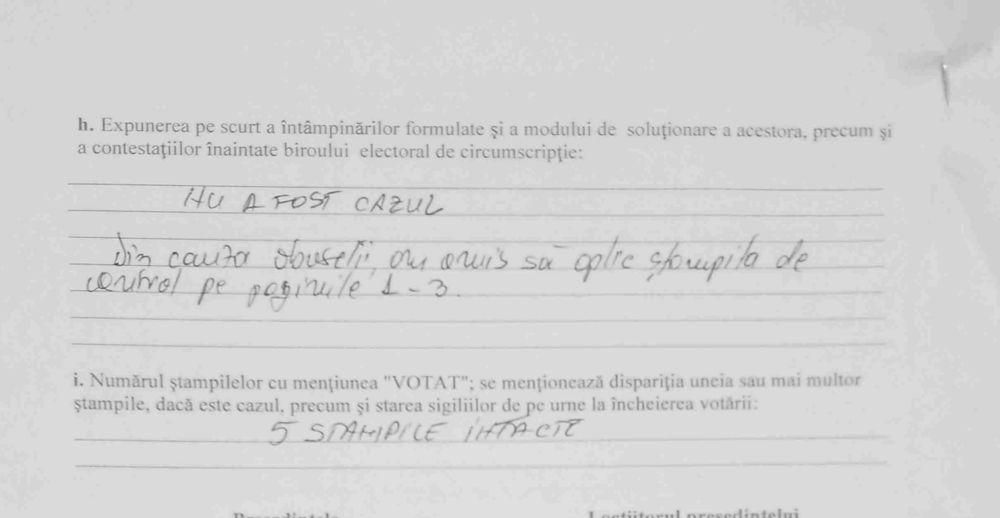 h. Expunerea pe scurt a întâmpinărilor formulate şi a modului de soluţionare a acestora, precum şi
a contestaţiilor înaintate biroului electoral de circumscripţie:
NU A FOST CAZUL
Din cauza oboselii, am omis să aplic ştampila de
control pe paginile 1-3.
i. Numărul ştampilelor cu menţiunea "VOTAT"; se menţionează dispariţia uneia sau mai multor
ştampile, dacă este cazul, precum şi starea sigiliilor de pe urne la încheierea votării:
5 STAMPILE INTACTE
Preşedintele Locţiitorul preşedintelui